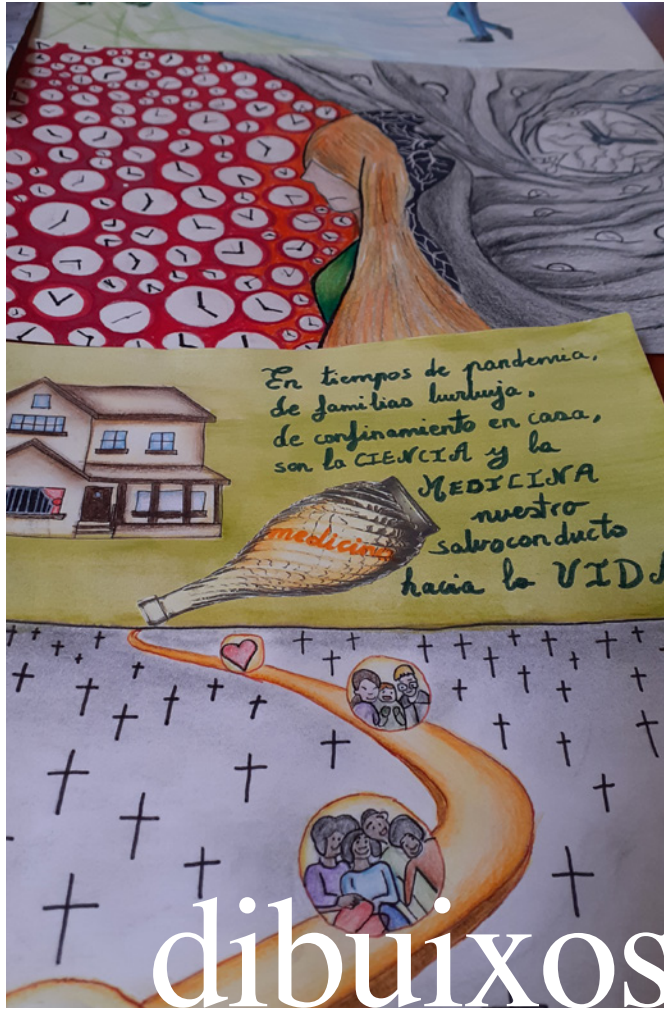 En tiempos de pandemia,
de familias burbuja,
de confinamiento en casa,
son la CIENCIA y la
MEDICINA
nuestro
salvoconducto
hacia la VIDA
medicina
dibuixos